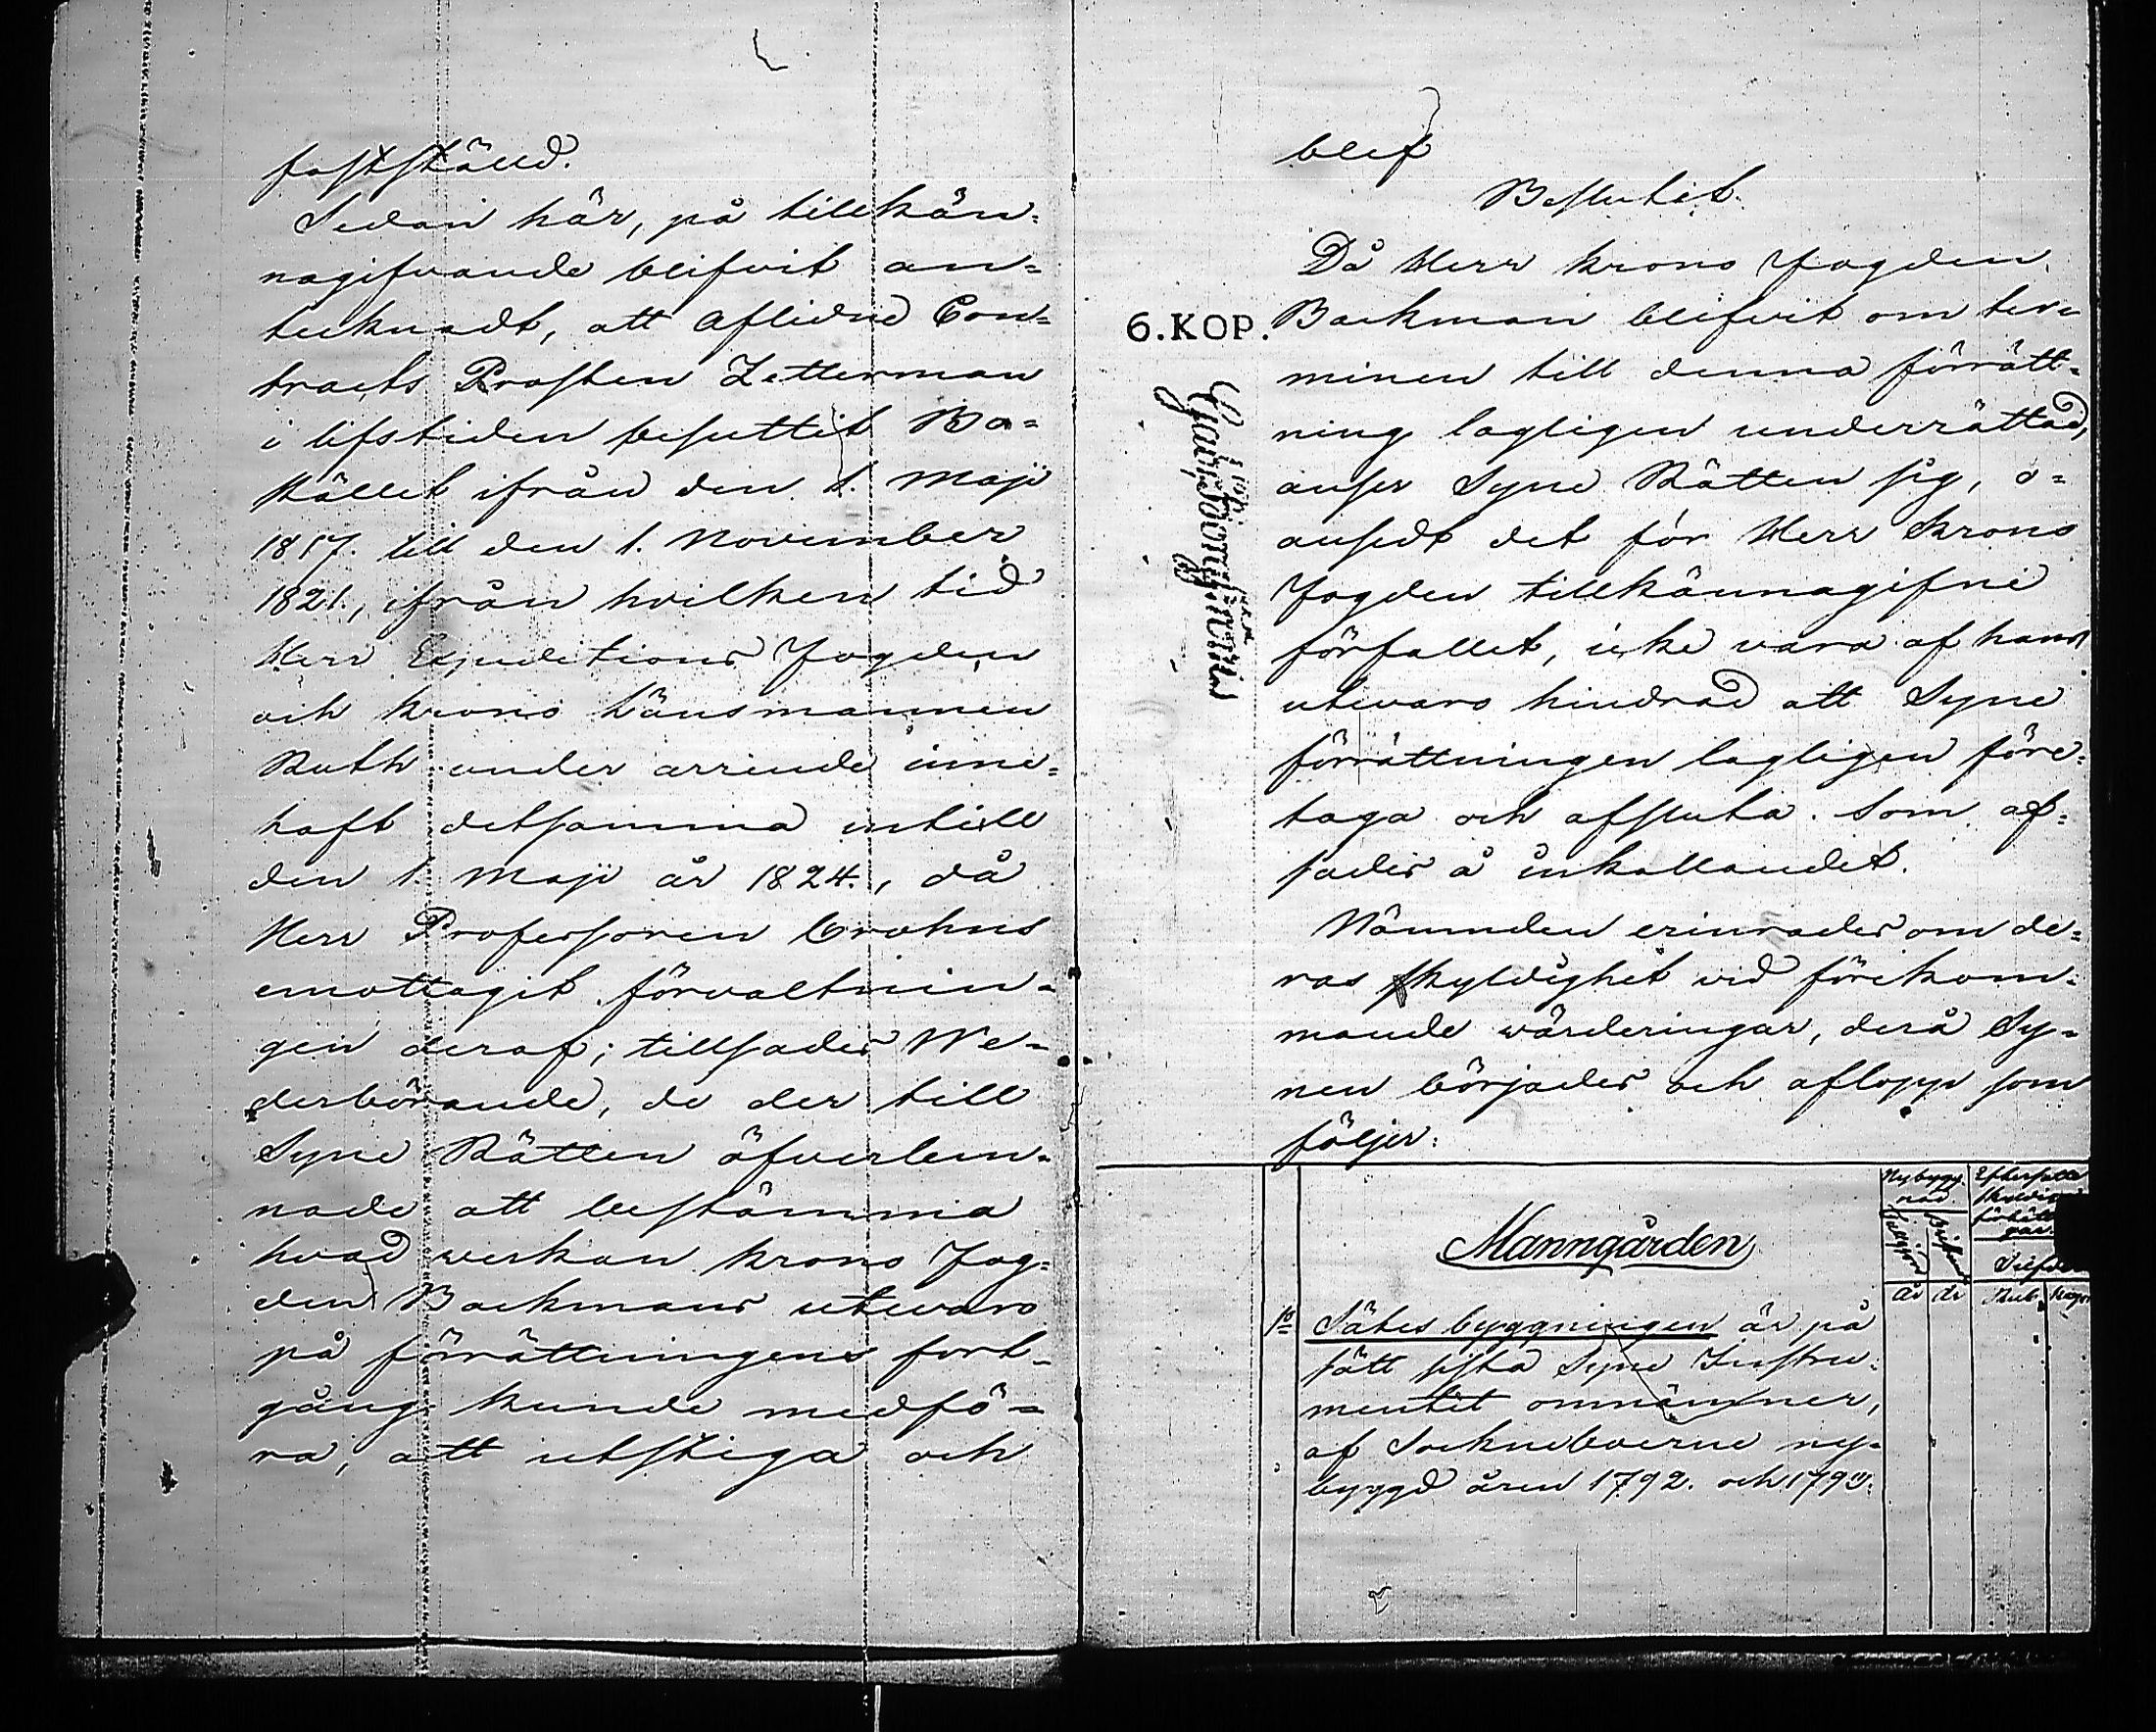 fastställd.
Sedan här, på tillkän-
nagifvande blifvit an-
tecknadt, att Aflidne Con-
tracts Prosten Zetterman
i lifstiden besuttit Bo-
stället ifrån den 1. Maji
1817. till den 1. November
1821., ifrån hvilken tid
Herr Expeditions Fogden
och Krono Länsmannen
Ruth under arrende inne-
haft detsamma intill
den 1. Maji år 1824., då
Herr Professoren Crohns
emottagit förvaltnin-
gen deraf; tillsades We-
derbörande, de der till
Syne Rätten öfverlem-
nade att bestämma
hvad verkan Krono Fog-
den Backmans utevaro
på förrättningens fort-
gång kunde medfö-
ra, att utstiga och
blef
Beslutit.
Då Herr Krono Fogden
6. KOP. Backman blifvit om ter-
minen till denna förrätt-
ning lagligen underrättad,
anser Syne Rätten sig, o-
ansedt det för Herr Krono
Fogden tillkännagifne
förfallet, icke vara af hans
utevaro hindrad att Syne
förrättningen lagligen före-
taga och afsluta. Som af-
sades å inkallandet.
Nämnden erinrades om de-
ras skyldighet vid förekom-
mande värderingar, derå Sy-
nen börjades och aflopp som
följer:
Nybygg
nad
Manngården
År År Rub. Kop
1o Sätes byggningen är på
sätt sista Syne Instru-
mentet omnämner,
af Sockneboerne ny-
byggd åren 1792. och 1793.